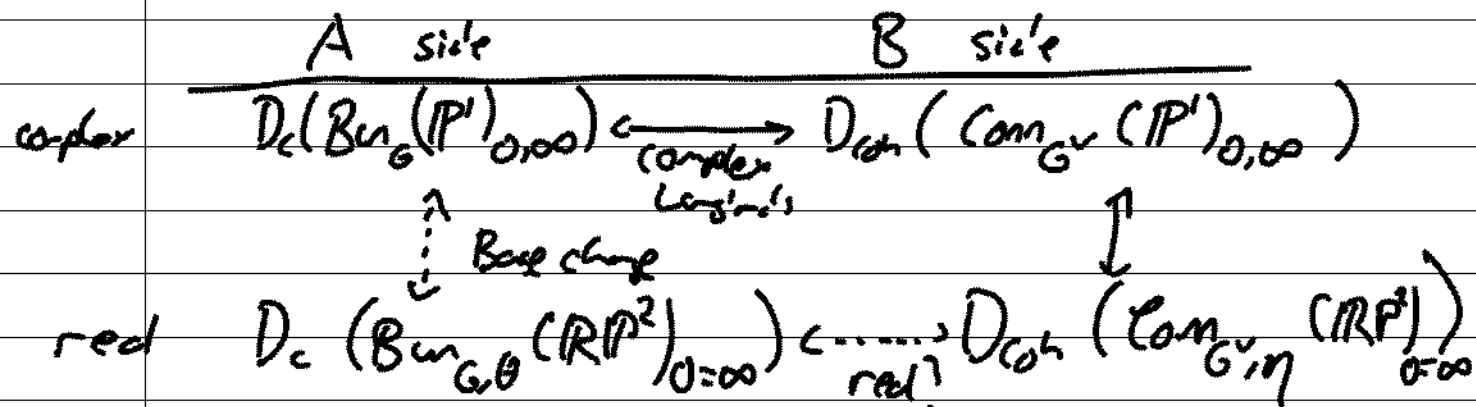 A side B side
complex D_c(Bun_G(P^1)_{0,∞}) ⟷ D_coh(Conn_{G^∨}(P^1)_{0,∞})
complex
Langlands
Base change
real D_c(Bun_{G,θ}(RP^2)_{0=∞}) ⟷ D_coh(Conn_{G^∨,η}(RP^2)_{0=∞})
real